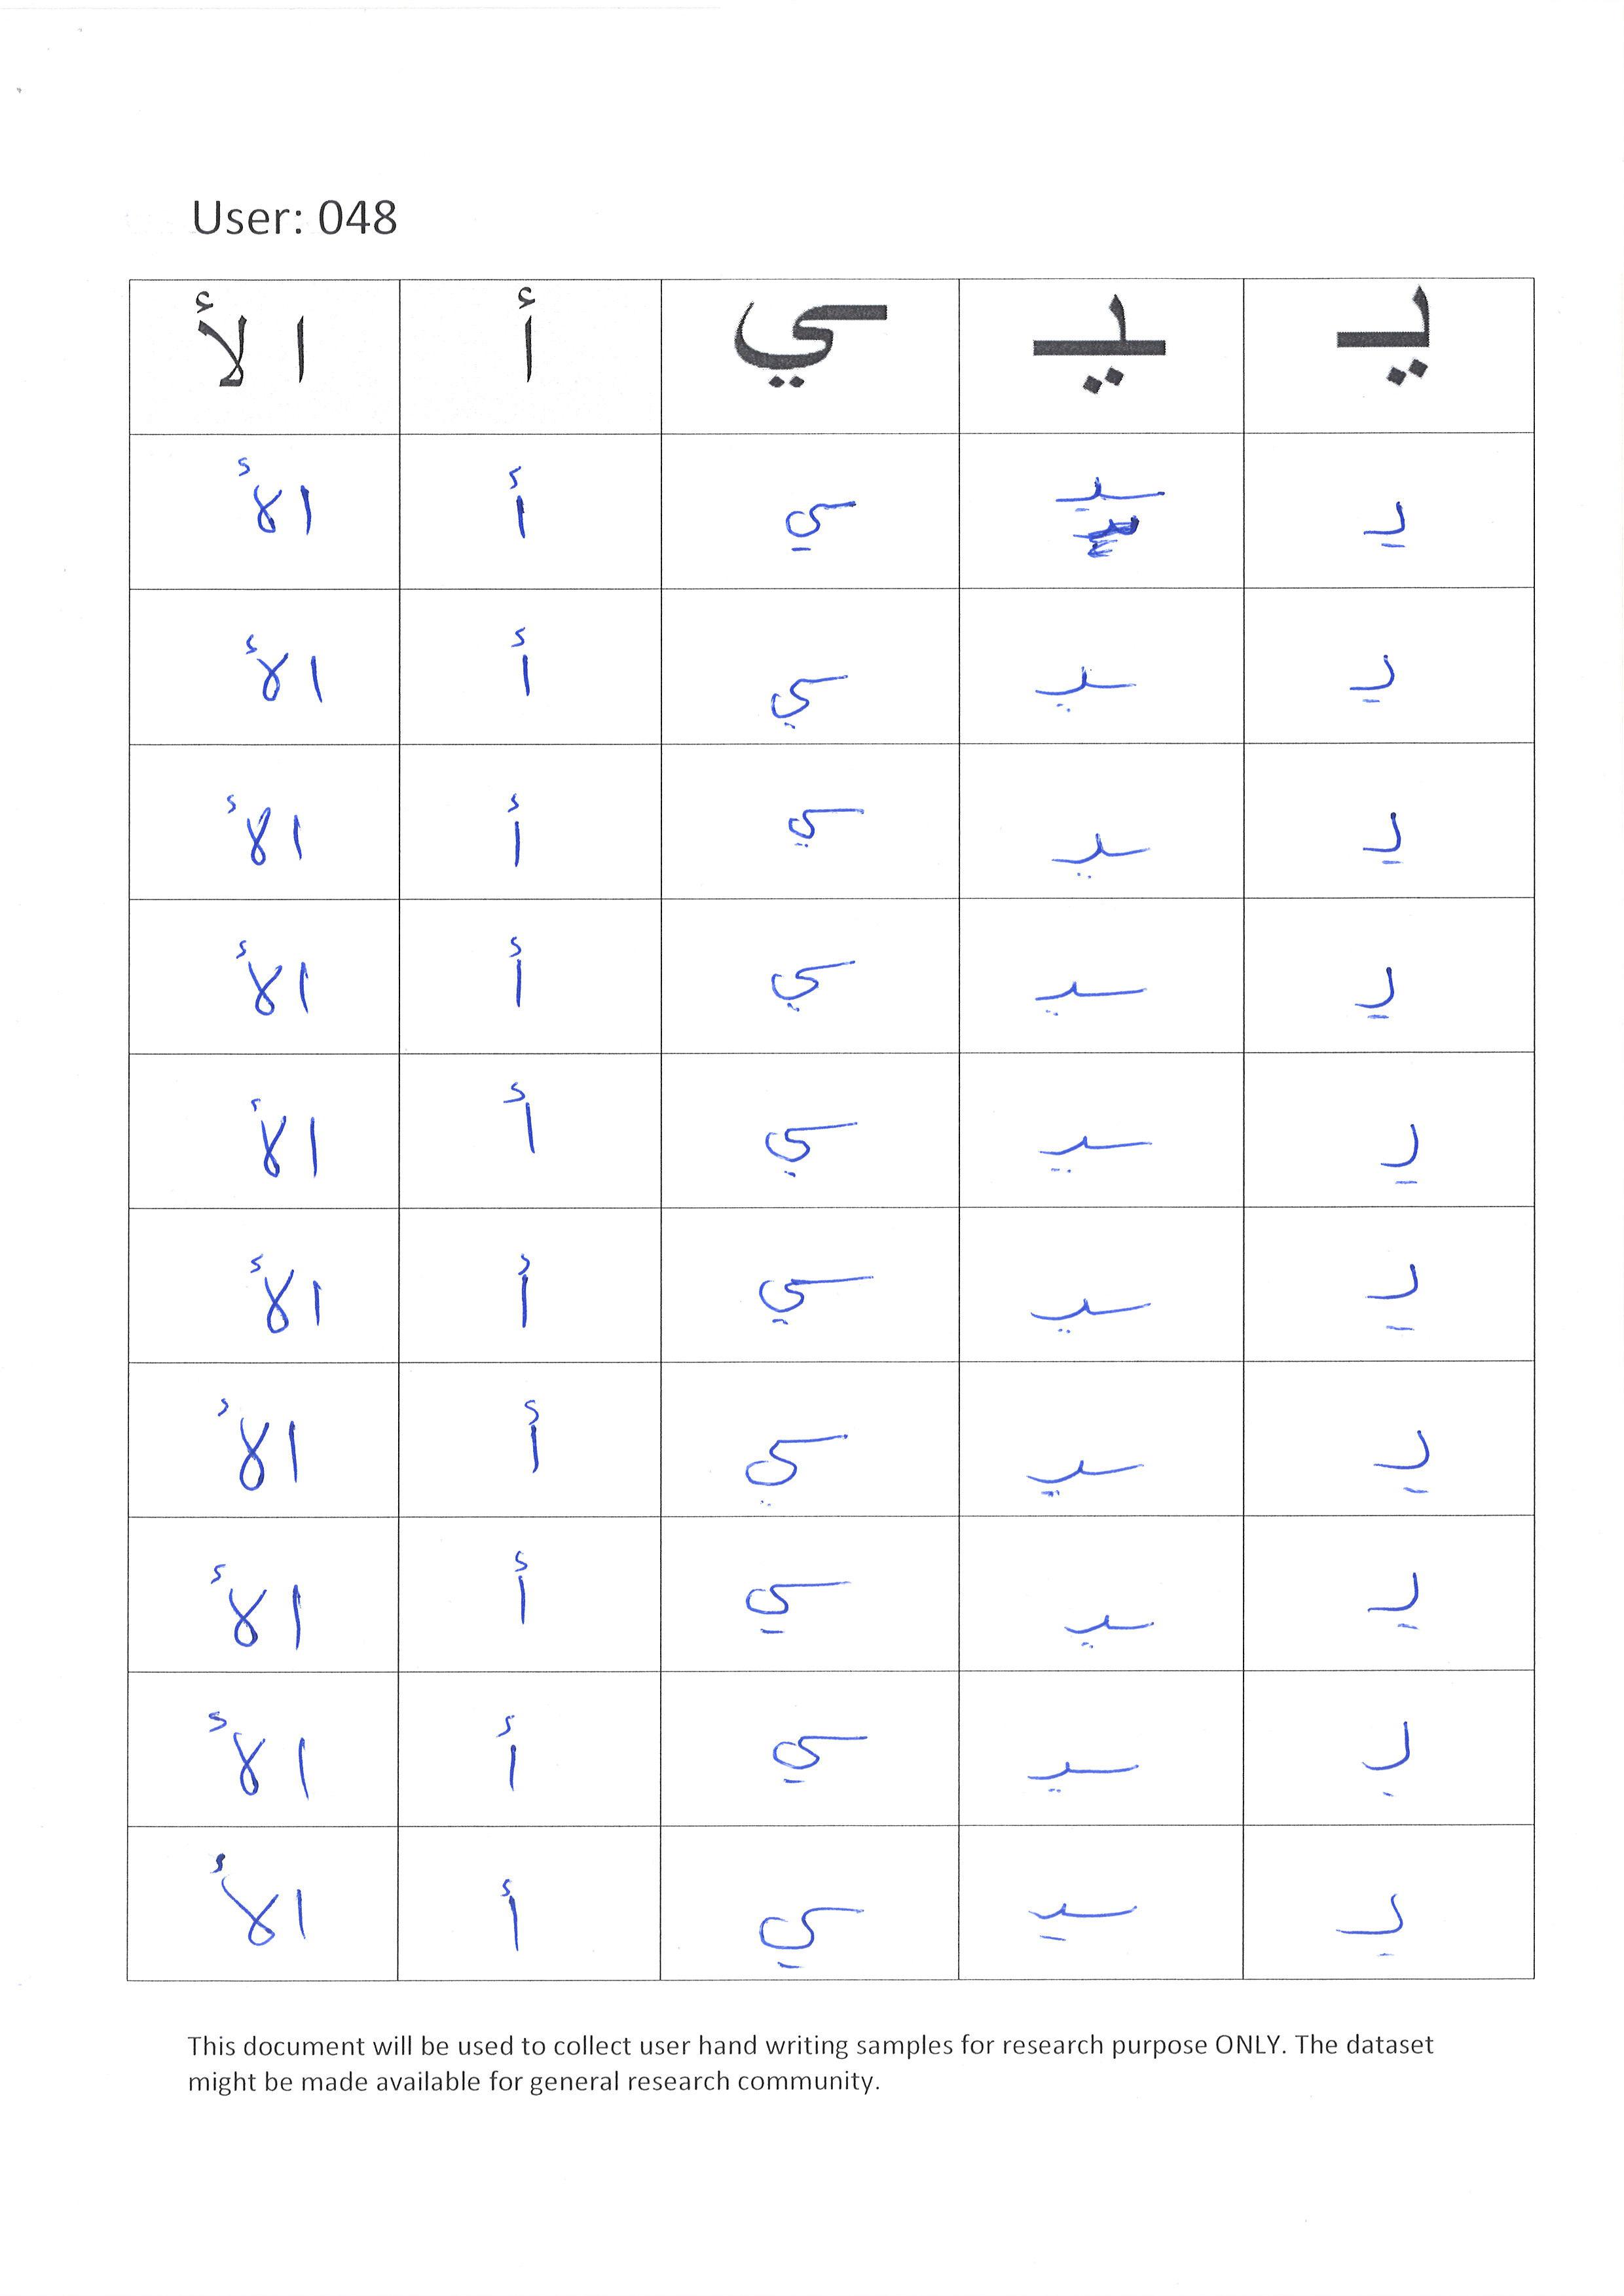 User: 048
يـ ـيـ ـي أ ا لأ
يـ ـيـ ـي أ ا لأ
يـ ـيـ ـي أ ا لأ
يـ ـيـ ـي أ ا لأ
يـ ـيـ ـي أ ا لأ
يـ ـيـ ـي أ ا لأ
يـ ـيـ ـي أ ا لأ
يـ ـيـ ـي أ ا لأ
يـ ـيـ ـي أ ا لأ
يـ ـيـ ـي أ ا لأ
يـ ـيـ ـي أ ا لأ
This document will be used to collect user hand writing samples for research purpose ONLY. The dataset
might be made available for general research community.